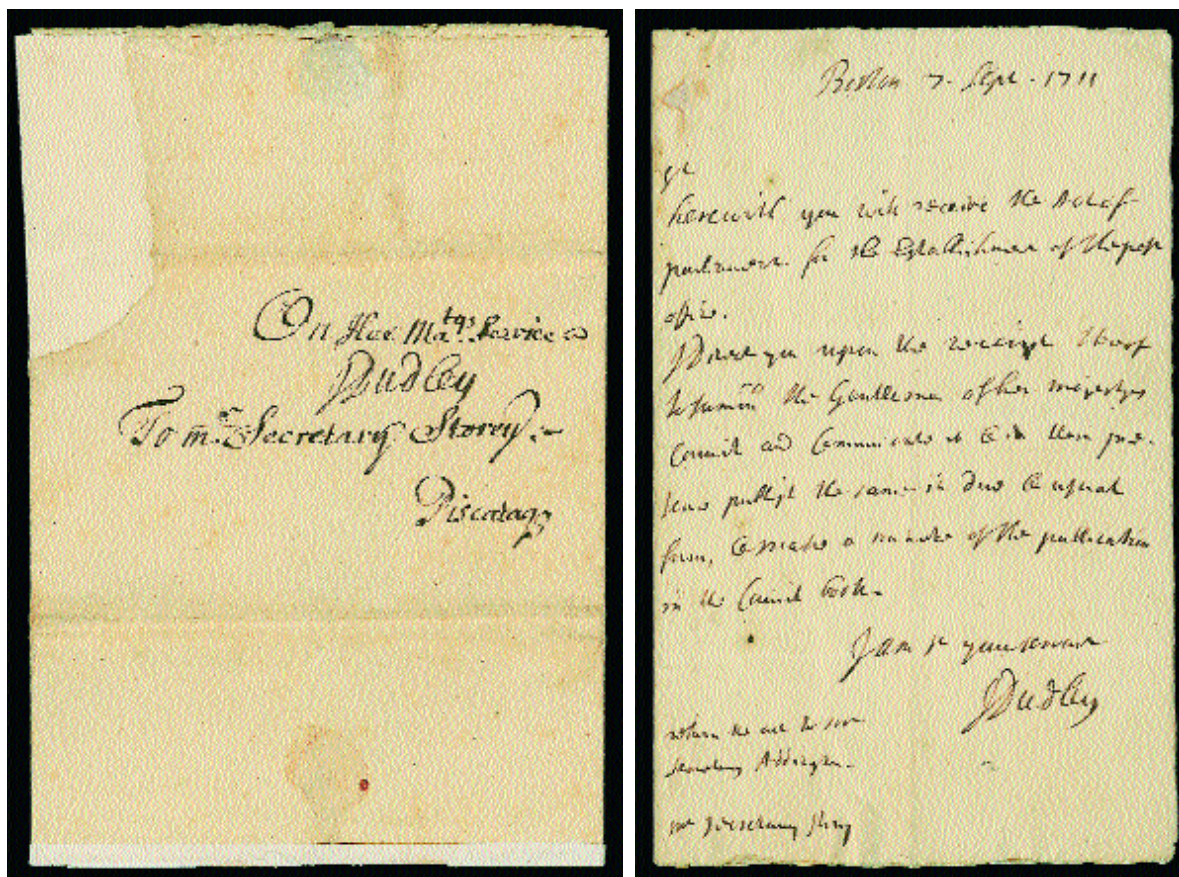 On Her Ma.tys Service
JDudley
To mr. Secretary Storey.-
Piscataq
Boston 7. Sept. 1711
Sr
herewith you will receive the Act of
parliament for the Establishment of the post
office.
I Direct you upon the receipt thereof
to sumon the Gentlemen of her majestyes
Council and Communicate it & in their pre-
sence publish the same in due & usual
form, & make a minute of the publication
in the Council book.
I am Sr your servant
JDudley
return the act to mr
Secretary Addington.
mr Secretary Story